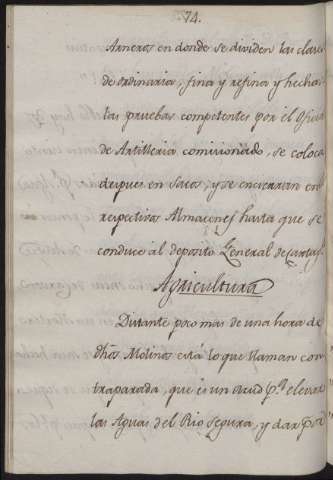 74.
Arneros en donde se dividen las clases
de ordinaria, fina y refina y hechas
las pruebas competentes por el Oficial
de Artilleria comisionado, se coloca
despues en Sacos, y se encierran en
respectivos Almacenes hasta que se
conduce al deposito General de Cartag.
Agricultura
Distante poco mas de una hora de
dhos Molinos está lo que llaman con
traparada, que es un Azud pª elevar
las Aguas del Rio Segura, y dar por